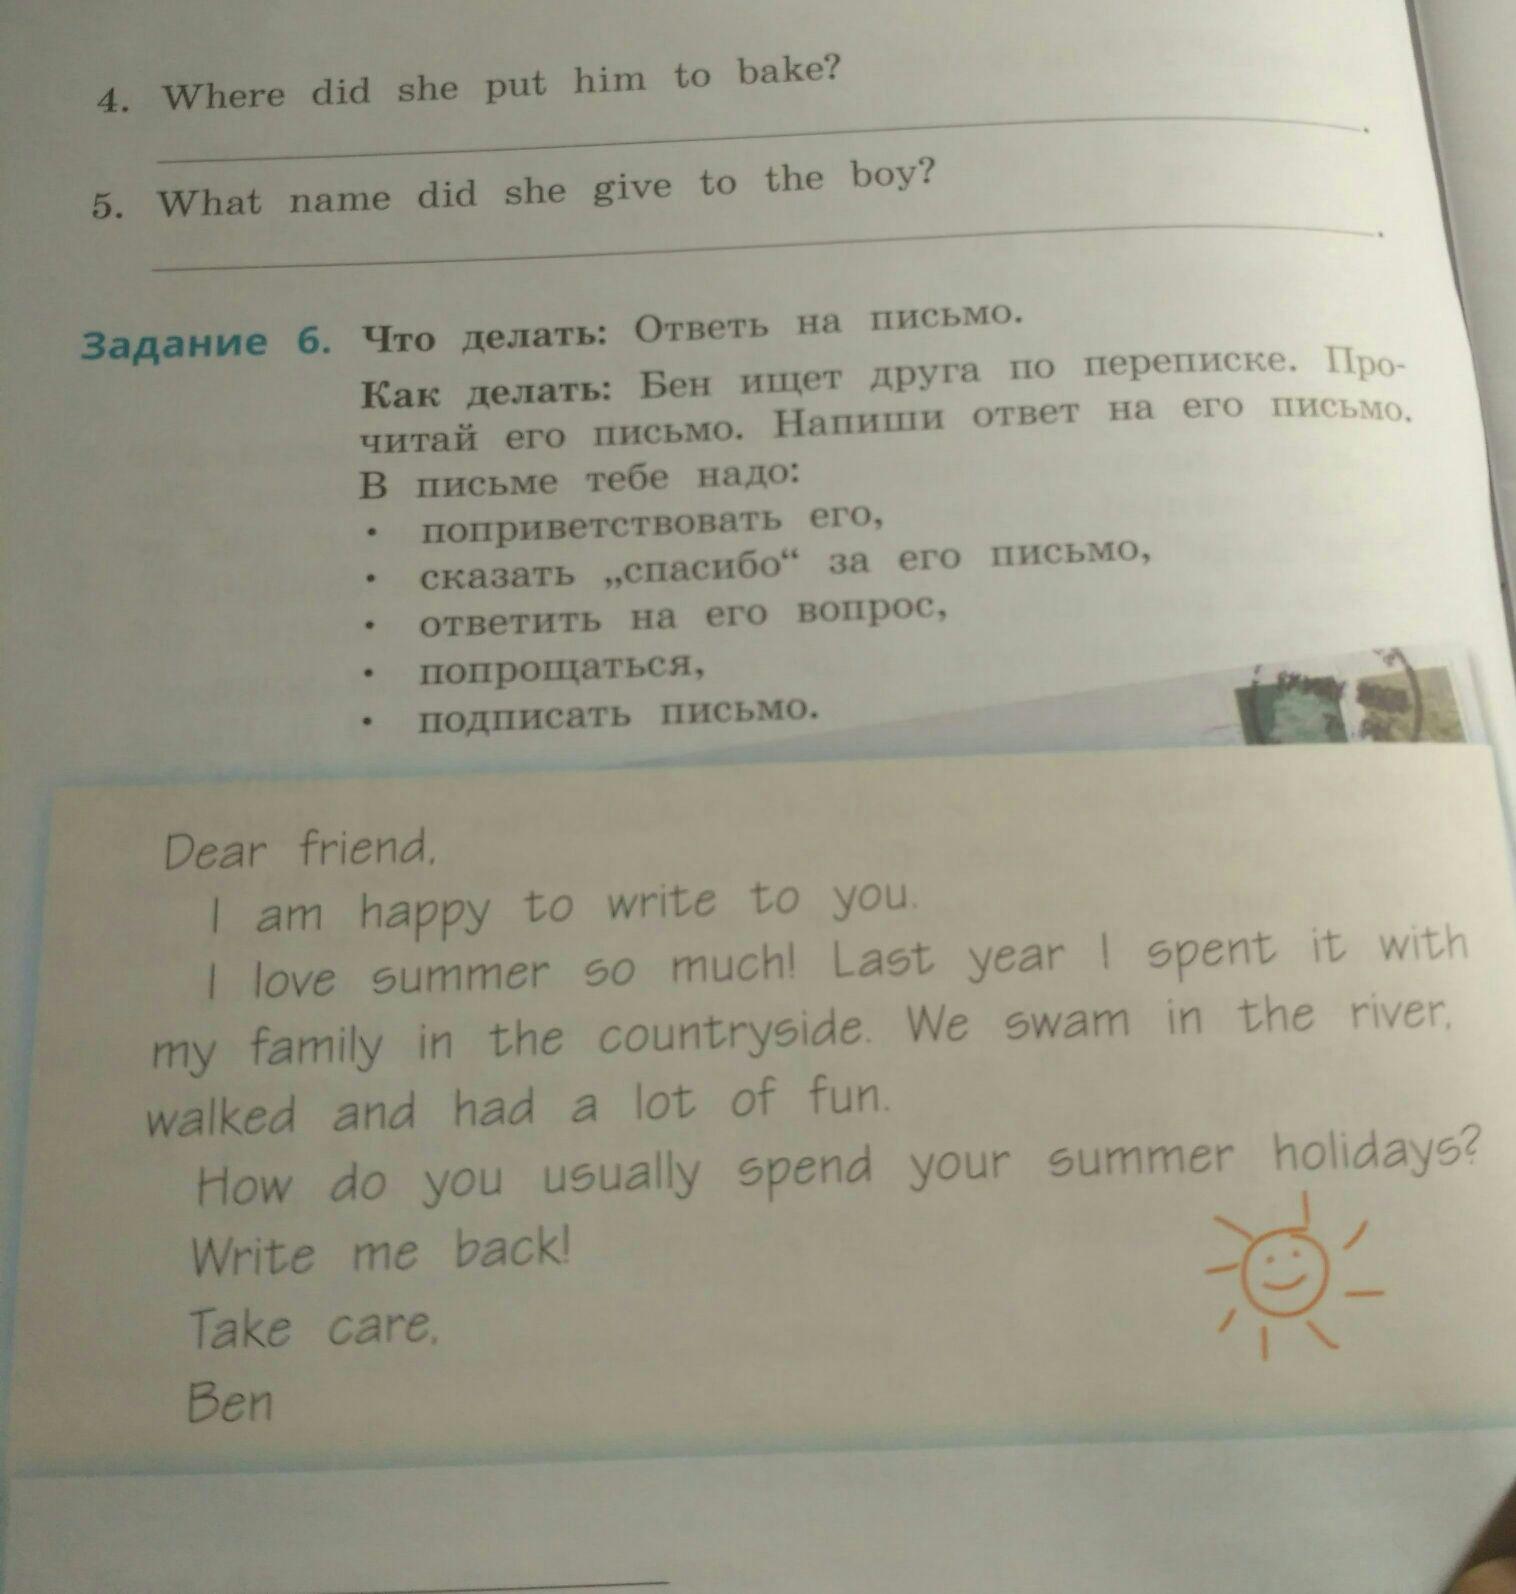 4. Where did she put him to bake?
.
5. What name did she give to the boy?
.
Задание 6. Что делать: Ответь на письмо.
Как делать: Бен ищет друга по переписке. Про-
читай его письмо. Напиши ответ на его письмо.
В письме тебе надо:
• поприветствовать его,
• сказать „спасибо“ за его письмо,
• ответить на его вопрос,
• попрощаться,
• подписать письмо.
Dear friend,
I am happy to write to you.
I love summer so much! Last year I spent it with
my family in the countryside. We swam in the river,
walked and had a lot of fun.
How do you usually spend your summer holidays?
Write me back!
Take care,
Ben